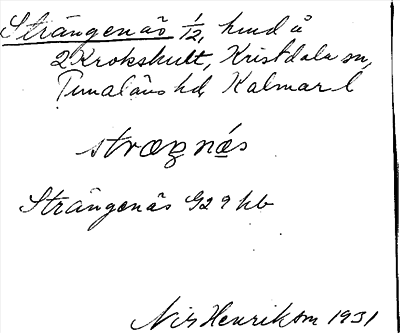 Strängenäs 1/12, hmd å
2 Krokshult, Kristdala sn,
Tunaläns hd, Kalmar l
stræŋnás
Strängenäs G29 kb
Nils Henrikson 1931